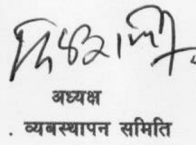 अध्यक्ष
. व्यबस्थापन समिति